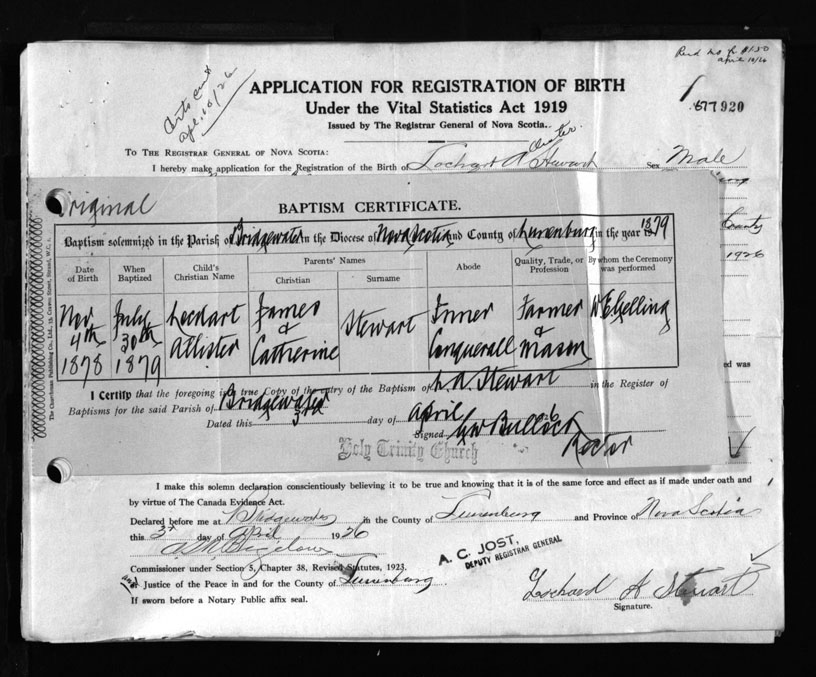 Recd M.O. fr $1.50
April 10/26
APPLICATION FOR REGISTRATION OF BIRTH
Under the Vital Statistics Act 1919
Issued by The Registrar General of Nova Scotia.
920
TO THE REGISTRAR GENERAL OF NOVA SCOTIA:
I hereby make application for the Registration of the Birth of Lochart A Stewart Sex Male
County
1926
ed was
Original
BAPTISM CERTIFICATE.
Baptism solemnized in the Parish of Bridgewater in the Diocese of Nova Scotia and County of Lunenburg in the year 1879
Date of Birth When Baptized Child's Christian Name Parents' Names Christian Surname Abode Quality, Trade, or Profession By whom the Ceremony was performed
Nov 4th 1878 July 30th 1879 Lochart Allister James & Catherine Stewart Inner Conquerall Farmer & Mason W E Gelling
The Churchman Publishing Co., Ltd., Strand, W.C.
I Certify that the foregoing is true Copy of the entry of the Baptism of L A Stewart in the Register of
Baptisms for the said Parish of Bridgewater
Dated this 3rd day of April 26
Signed GW Bullock
Rector
Holy Trinity Church
I make this solemn declaration conscientiously believing it to be true and knowing that it is of the same force and effect as if made under oath and
by virtue of The Canada Evidence Act.
Declared before me at Bridgewater in the County of Lunenburg and Province of Nova Scotia
this 3rd day of April 1926
A. C. JOST,
DEPUTY REGISTRAR GENERAL
Commissioner under Section 5, Chapter 38, Revised Statutes, 1923.
Justice of the Peace in and for the County of Lunenburg
If sworn before a Notary Public affix seal.
Lochard A Stewart
Signature.